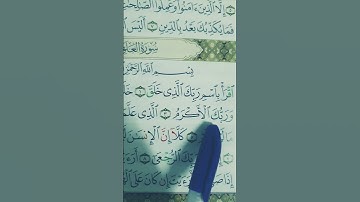 إِلَّا ٱلَّذِينَ ءَامَنُوا۟ وَعَمِلُوا۟ ٱلصَّٰلِحَٰتِ
فَمَا يُكَذِّبُكَ بَعْدُ بِٱلدِّينِ أَلَيْسَ
سُورَةُ ٱلْعَلَقِ
بِسْمِ ٱللَّهِ ٱلرَّحْمَٰنِ
ٱقْرَأْ بِٱسْمِ رَبِّكَ ٱلَّذِى خَلَقَ
وَرَبُّكَ ٱلْأَكْرَمُ ٱلَّذِى عَلَّمَ
كَلَّآ إِنَّ ٱلْإِنسَٰنَ
رَبِّكَ ٱلرُّجْعَىٰٓ
إِذَا صَلَّىٰٓ أَرَءَيْتَ إِن كَانَ عَلَى